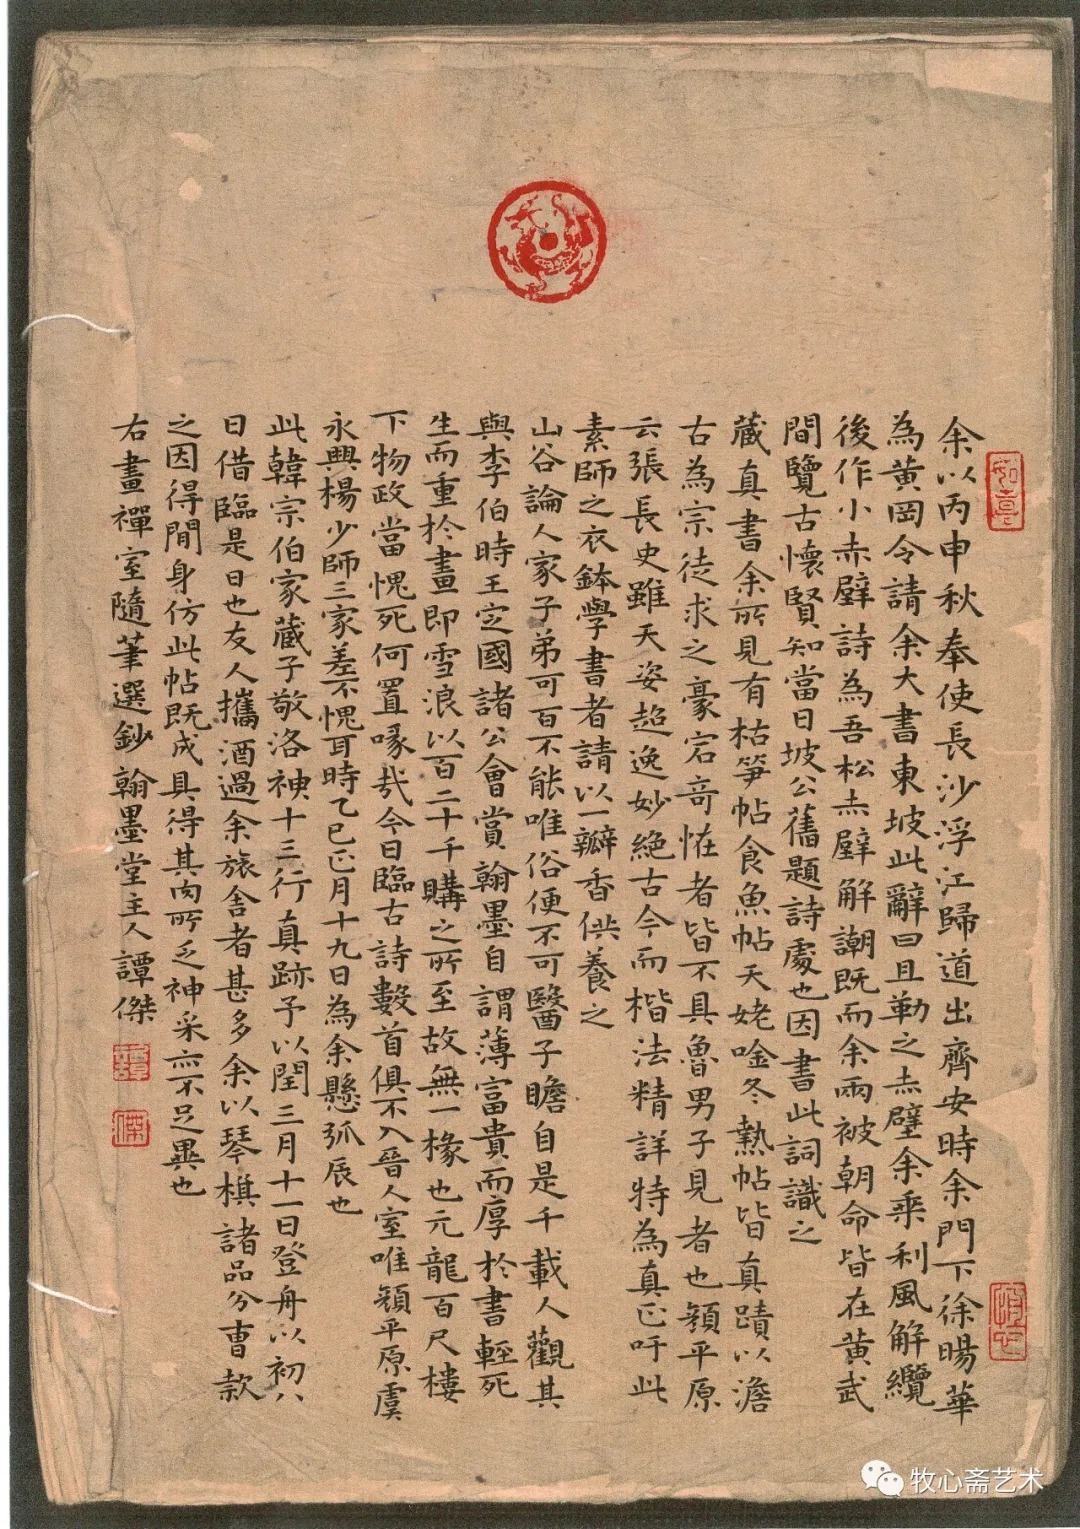 余以丙申秋奉使長沙浮江歸道出齊安時余門下徐暘華
為黃岡令請余大書東坡此辭曰且勒之赤壁余乘利風解纜
後作小赤壁詩為吾松赤壁解謿既而余兩被朝命皆在黃武
間覽古懷賢知當日坡公舊題詩處也因書此詞識之
藏真書余所見有枯筍帖食魚帖天姥唫冬熱帖皆真蹟以澹
古為宗徒求之豪宕奇恠者皆不具魯男子見者也顏平原
云張長史雖天姿超逸妙絕古今而楷法精詳特為真正吁此
素師之衣鉢學書者請以一瓣香供養之
山谷論人家子弟可百不能唯俗便不可醫子瞻自是千載人觀其
與李伯時王定國諸公會賞翰墨自謂薄富貴而厚於書輕死
生而重於畫即雪浪以百二十千購之所至故無一椽也元龍百尺樓
下物政當愧死何置喙哉今日臨古詩數首俱不入晉人室唯顏平原虞
永興楊少師三家差不愧耳時乙巳正月十九日為余懸弧辰也
此韓宗伯家藏子敬洛神十三行真跡予以閏三月十一日登舟以初八
日借臨是日也友人攜酒過余旅舍者甚多余以琴棋諸品分曹款
之因得閒身仿此帖既成具得其肉所乏神采亦不足異也
右畫禪室隨筆選鈔翰墨堂主人譚傑
如意
譚
傑
牧心斋艺术